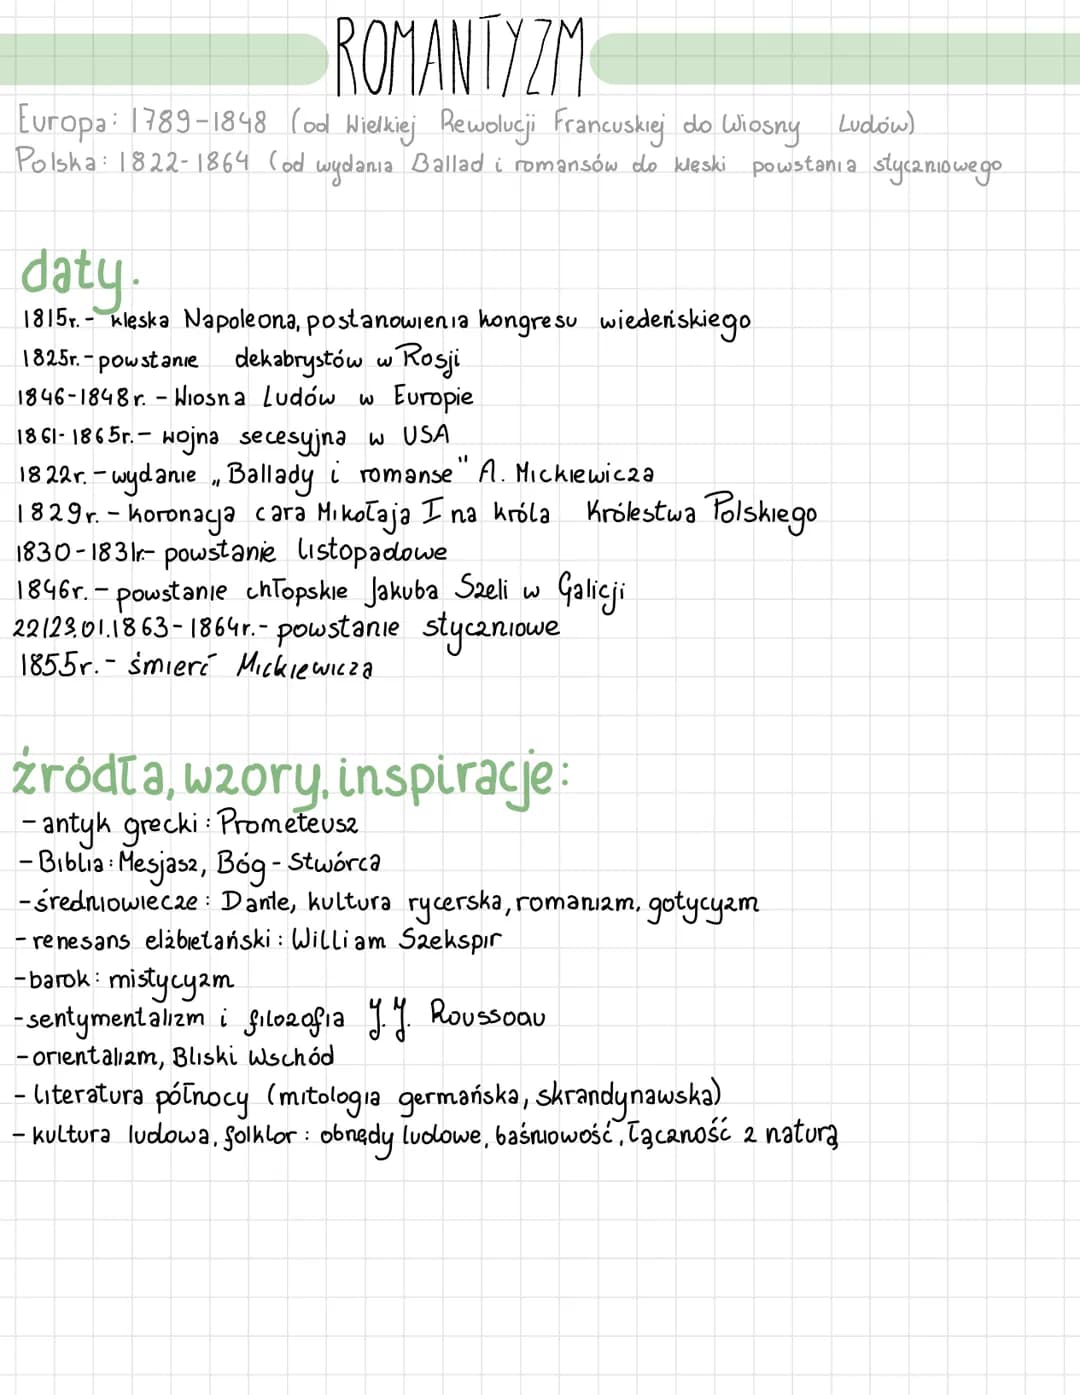 ROMANTYZM
Europa: 1789-1848 (od Wielkiej Rewolucji Francuskiej do Wiosny Ludów)
Polska: 1822-1864 (od wydania Ballad i romansów do klęski powstania styczniowego
daty.
1815r. - klęska Napoleona, postanowienia kongresu wiedeńskiego
1825r. - powstanie dekabrystów w Rosji
1846-1848r. - Wiosna Ludów w Europie
1861-1865r. - wojna secesyjna w USA
1822r. - wydanie „Ballady i romanse" A. Mickiewicza
1829r. - koronacja cara Mikołaja I na króla Królestwa Polskiego
1830-1831r- powstanie listopadowe
1846r. - powstanie chłopskie Jakuba Szeli w Galicji
22/23.01.1863-1864r.- powstanie styczniowe
1855r. - śmierć Mickiewicza
źródła, wzory, inspiracje:
- antyk grecki: Prometeusz
- Biblia: Mesjasz, Bóg - Stwórca
- średniowiecze: Dante, kultura rycerska, romanizm, gotycyzm
- renesans elżbietański: William Szekspir
- barok: mistycyzm
- sentymentalizm i filozofia J.J. Roussoau
- orientalizm, Bliski Wschód
- literatura północy (mitologia germańska, skrandynawska)
- kultura ludowa, folklor: obrzędy ludowe, baśniowość, łączność z naturą